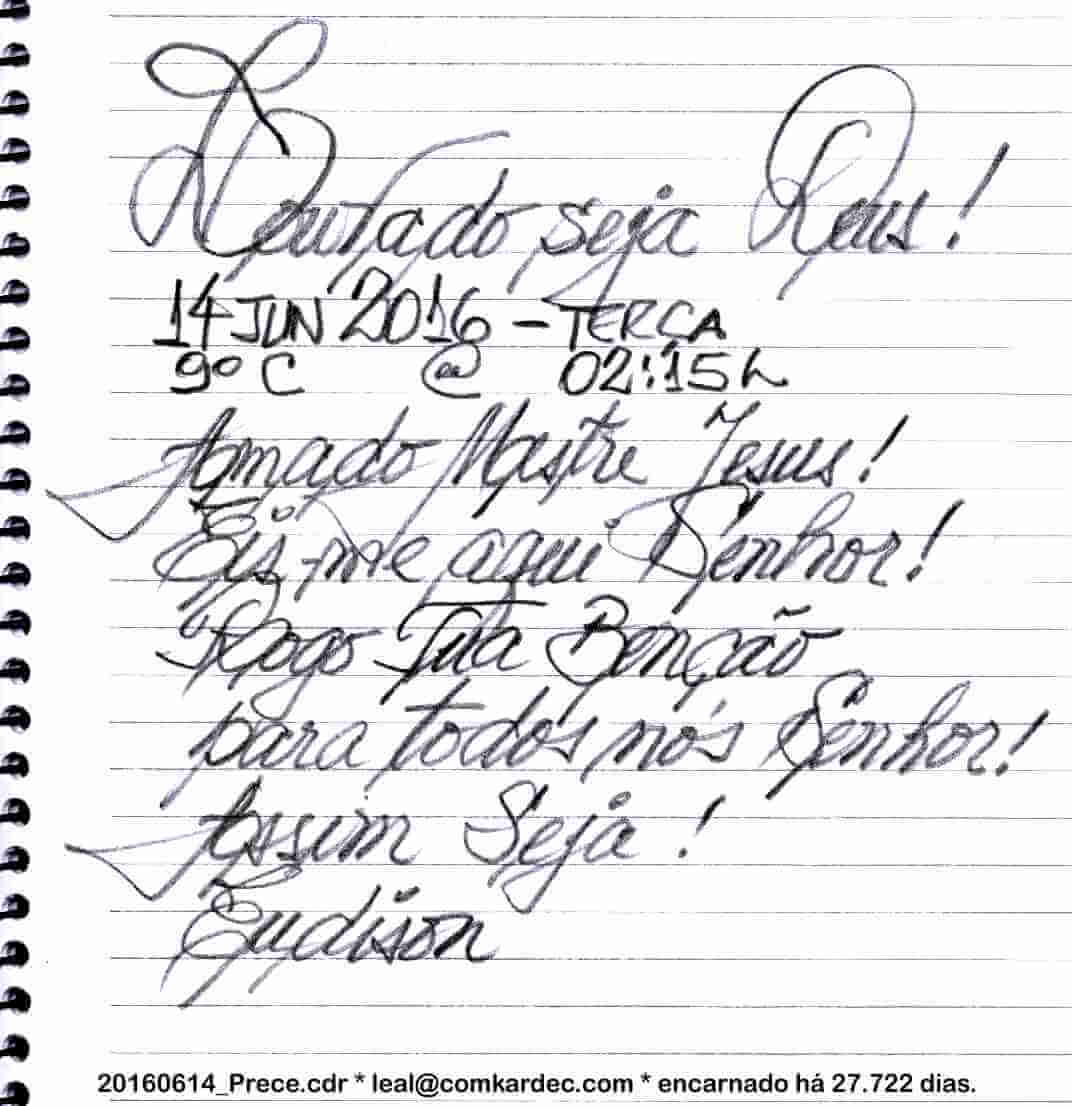 Louvado seja Deus!
14 JUN 2016 - TERÇA
9º C @ 02:15h
Amado Mestre Jesus!
Eis-me aqui Senhor!
Rogo Tua Benção
para todos nós Senhor!
Assim Seja!
Eudison
20160614_Prece.cdr * leal@comkardec.com * encarnado há 27.722 dias.